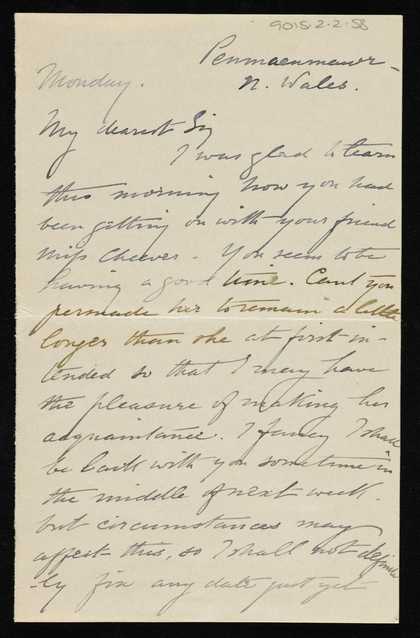 9015-2-2-58
Penmaenmawr -
N. Wales.
Monday.
My dearest Sig
I was glad to learn
this morning how you had
been getting on with your friend
Miss Cheever. You seem to be
having a good time. Cant you
persuade her to remain a little
longer than she at first in-
tended so that I may have
the pleasure of making her
acquaintance. I fancy I shall
be back with you sometime in
the middle of next week.
but circumstances may
affect this, so I shall not definite
-ly fix any date just yet